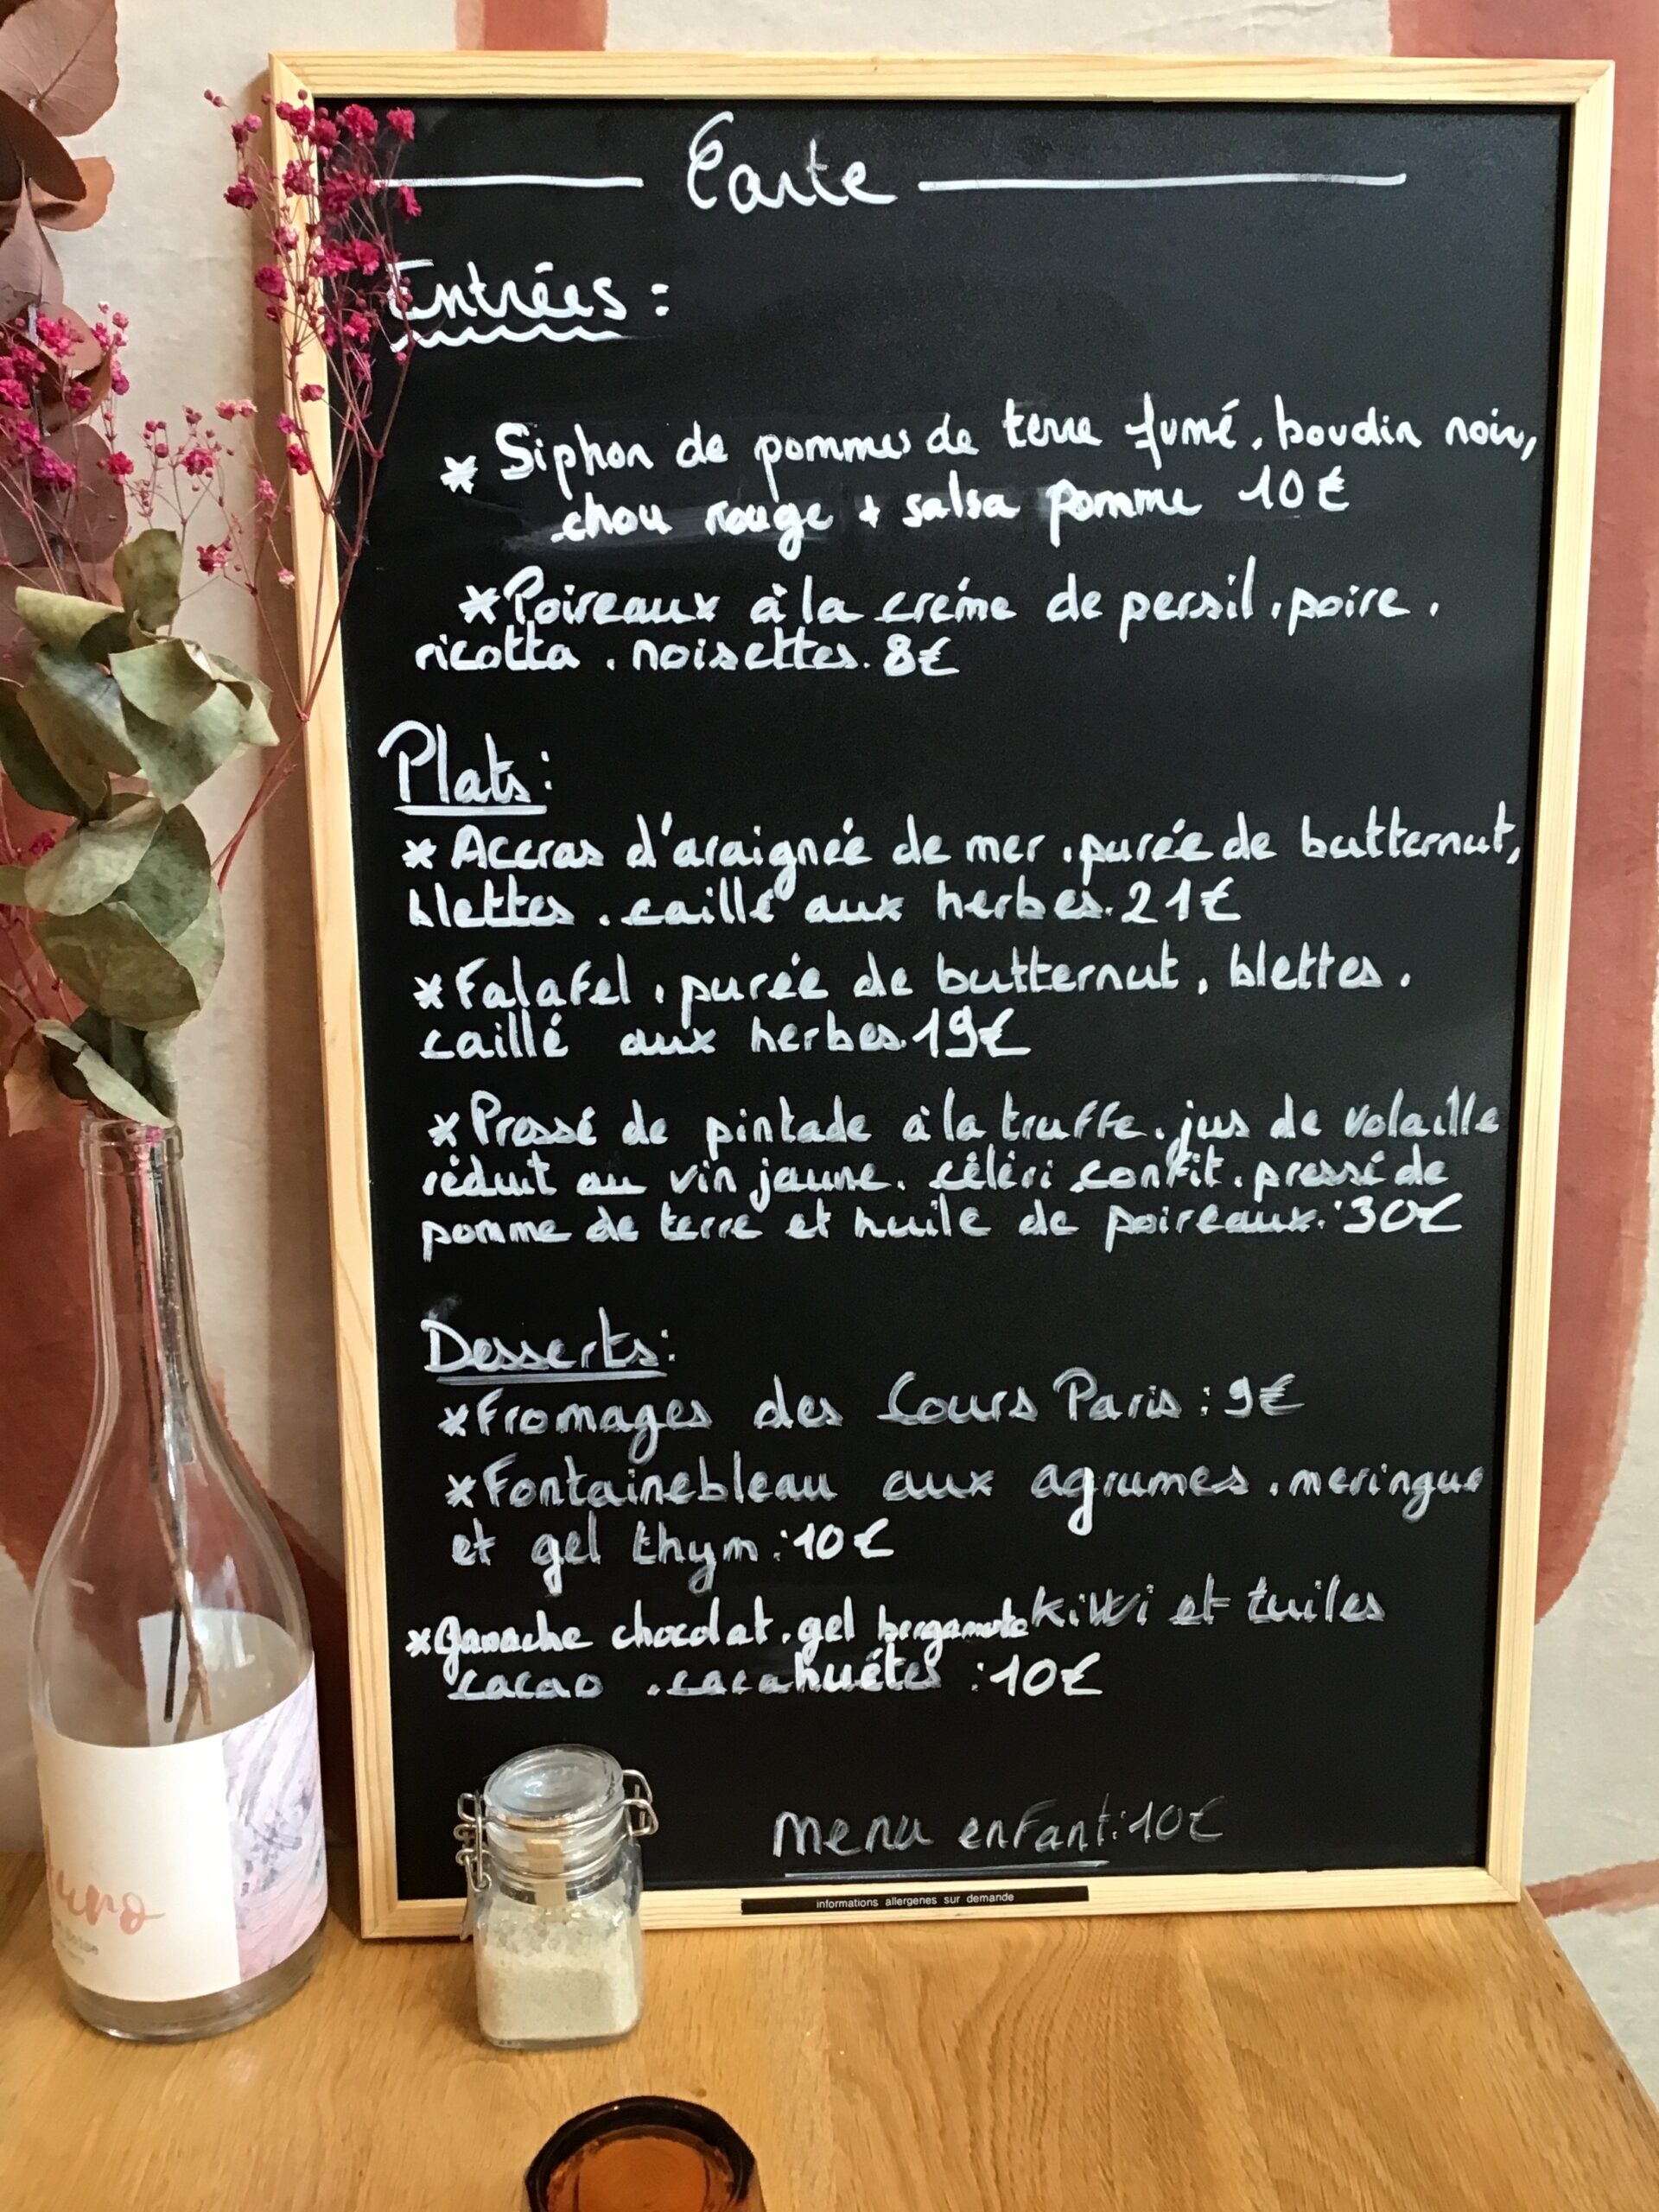 Carte
Entrées :
* Siphon de pommes de terre fumé, boudin noir,
chou rouge + salsa pomme 10€
* Poireaux à la crème de persil, poire,
ricotta, noisettes. 8€
Plats:
* Accras d'araignée de mer, purée de butternut,
blettes, caillé aux herbes. 21€
* Falafel, purée de butternut, blettes,
caillé aux herbes. 19€
* Pressé de pintade à la truffe, jus de volaille
réduit au vin jaune, céleri confit, pressé de
pomme de terre et huile de poireaux. 30€
Desserts:
* Fromages des Cours Paris : 9€
* Fontainebleau aux agrumes, meringue
et gel thym : 10€
* Ganache chocolat, gel bergamote kiwi et tuiles
cacao, cacahuètes : 10€
menu enfant: 10€
informations allergenes sur demande